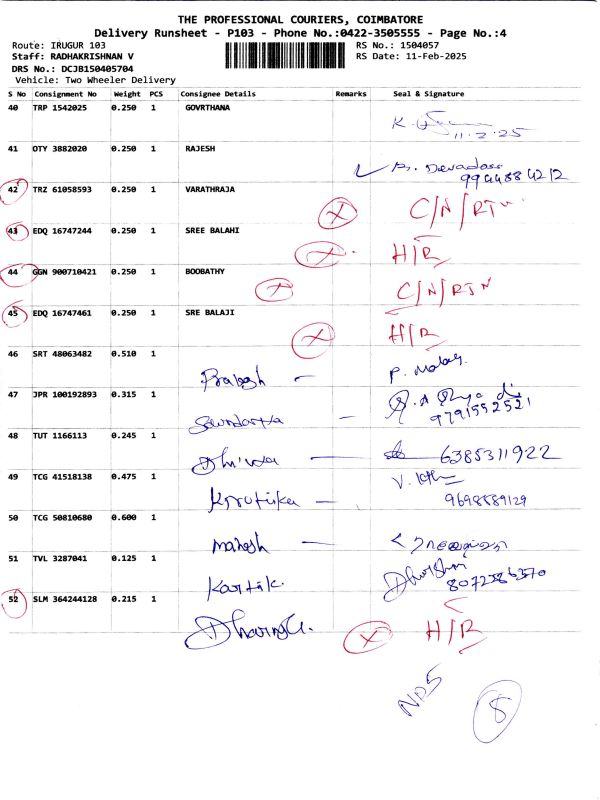 THE PROFESSIONAL COURIERS, COIMBATORE
Delivery Runsheet - P103 - Phone No.:0422-3505555 - Page No.:4
Route: IRUGUR 103 RS No.: 1504057
Staff: RADHAKRISHNAN V RS Date: 11-Feb-2025
DRS No.: DCJB150405704
Vehicle: Two Wheeler Delivery
S No Consignment No Weight PCS Consignee Details Remarks Seal & Signature
40 TRP 1542025 0.250 1 GOVRTHANA
K.
11.2.25
41 OTY 3882020 0.250 1 RAJESH
9944884212
42 TRZ 61058593 0.250 1 VARATHRAJA
X C/N/RTN
43 EDQ 16747244 0.250 1 SREE BALAHI
X H/R
44 GGN 900710421 0.250 1 BOOBATHY
X C/N/RTN
45 EDQ 16747461 0.250 1 SRE BALAJI
X H/R
46 SRT 48063482 0.510 1
P.
47 JPR 100192893 0.315 1
9791552521
48 TUT 1166113 0.245 1
Dhiwa 6385311922
49 TCG 41518138 0.475 1
V.
Krutika 9698889129
50 TCG 50810680 0.600 1
Mahesh
51 TVL 3287041 0.125 1
Kartik.
8072586370
52 SLM 364244128 0.215 1
X H/R
NDS
8